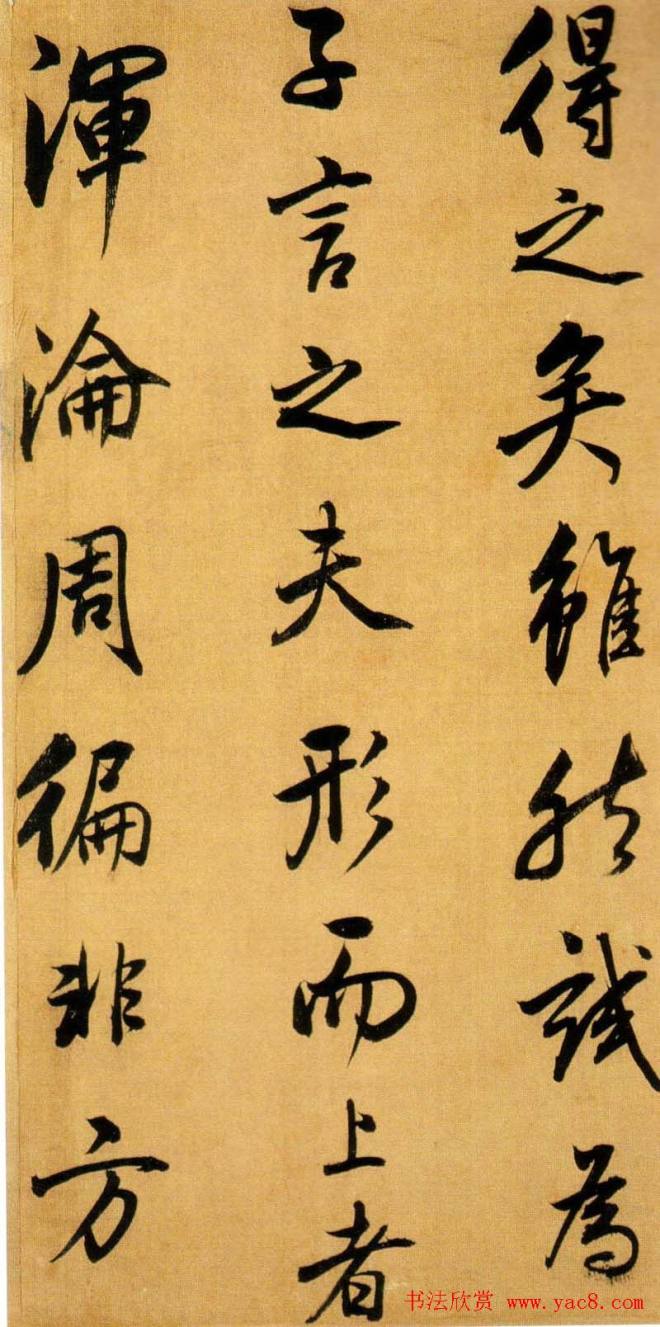 得之矣雖然試為
子言之夫形而上者
渾淪周徧非方
书法欣赏 www.yac8.com